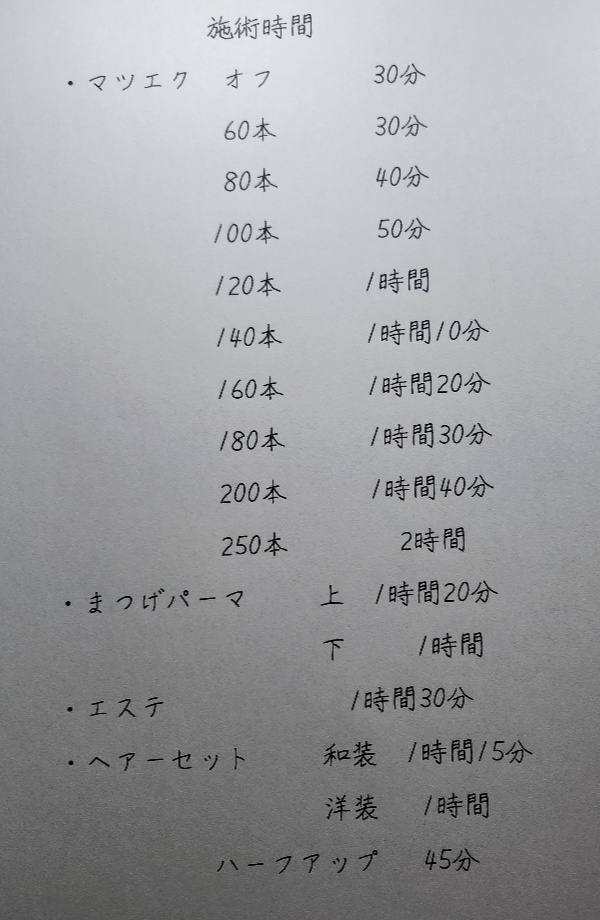 施術時間
・マツエク オフ 30分
60本 30分
80本 40分
100本 50分
120本 1時間
140本 1時間10分
160本 1時間20分
180本 1時間30分
200本 1時間40分
250本 2時間
・まつげパーマ 上 1時間20分
下 1時間
・エステ 1時間30分
・ヘアーセット 和装 1時間15分
洋装 1時間
ハーフアップ 45分